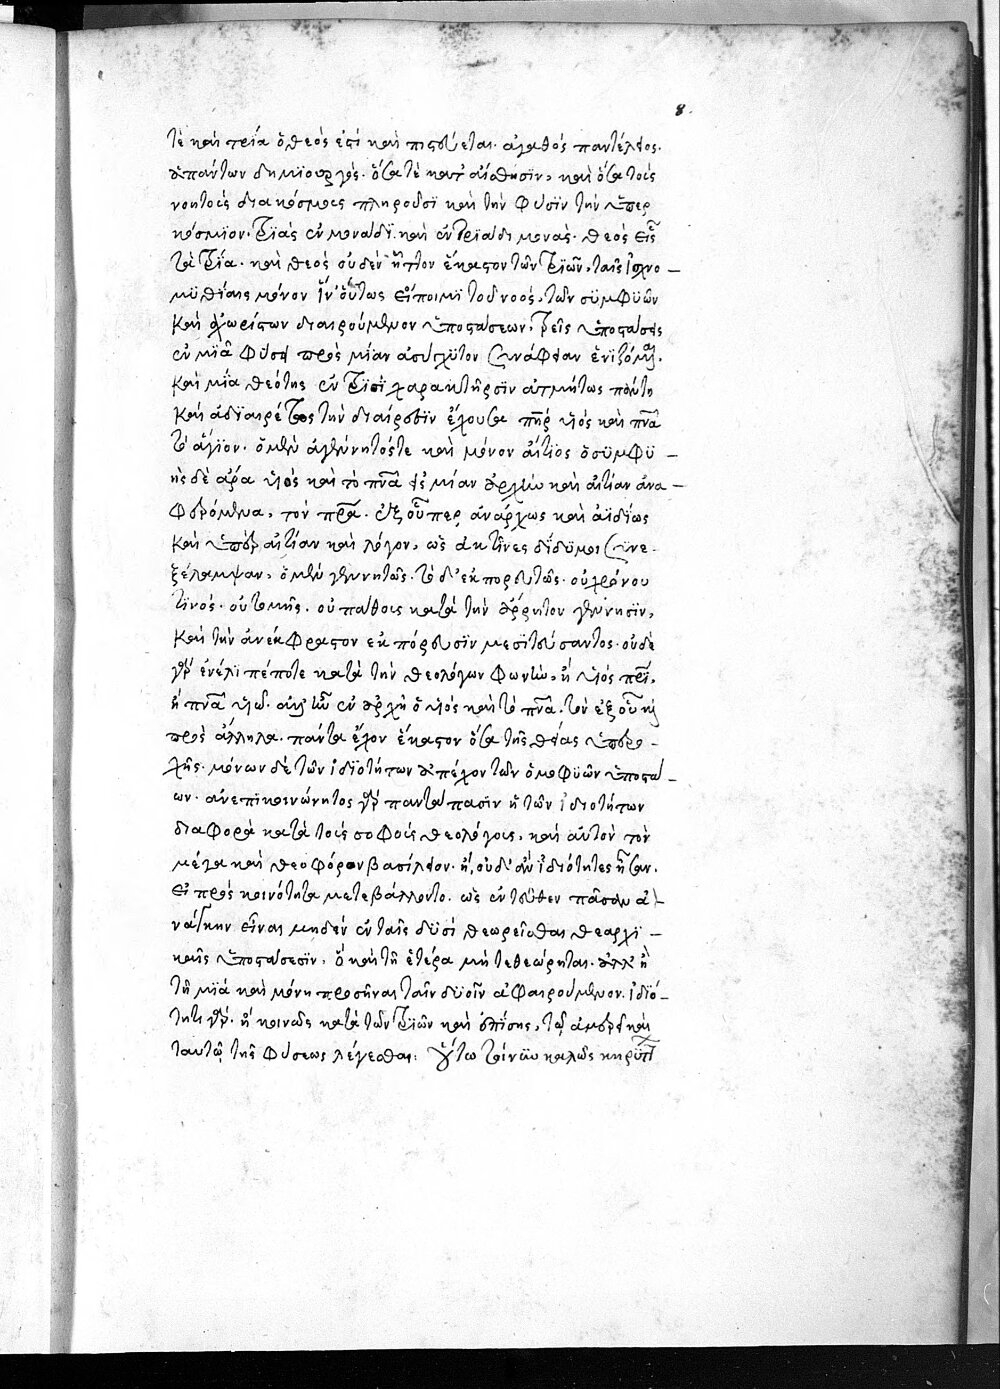 8.
τε καὶ τρία ὁ θεός ἐστι καὶ πιστεύεται. ἀγαθός παντέλειος.
ἁπάντων δημιουργός. ὅσα τὲ κατ' αἴσθησιν, καὶ ὅσα τοὺς
νοητοὺς διακόσμους πληροῦσι καὶ τὴν φύσιν τὴν ὑπερ
κόσμιον. τριὰς ἐν μονάδι καὶ ἐν τριάδι μονάς. θεός εἷς
τὰ τρία. καὶ θεὸς οὐδὲν ἧττον ἕκαστον τῶν τριῶν, ταῖς ἰσχνο –
μυθίαις μόνον ἵν' οὕτως εἴποιμι τοῦ νοός, τῶν συμφυῶν
καὶ ἀχωρίστων διαιρούμενον ὑποστάσεων, τρεῖς ὑποστάσεις
ἐν μιᾷ φύσει πρὸς μίαν ἀσύγχυτον συνάφειαν ἑνιζόμεναι.
καὶ μία θεότης ἐν τρισὶ χαρακτῆρσιν ἀτμήτως πάντη
καὶ ἀδιαιρέτως τὴν διαίρεσιν ἔχουσα πηρ υἱός καὶ πνα
τὸ ἅγιον. ὁ μὲν ἀγέννητός τε καὶ μόνον αἴτιος ὁ συμφυ –
ὴς δὲ ἄρα υἱὸς καὶ τὸ πνα εἰς μίαν ἀρχὴν καὶ αἰτίαν ἀνα –
φερόμενα, τὸν πρα. ἐξ οὗπερ ἀνάρχως καὶ ἀϊδίως
καὶ ὑπὲρ αἰτίαν καὶ λόγον, ὡς ἀκτῖνες δίδυμοι συνε
ξέλαμψαν, ὁ μὲν γεννητῶς. τὸ δ' ἐκπορευτῶς. οὐ χρόνου
τινός. οὐ τομῆς. οὐ πάθους κατὰ τὴν ἄρρητον γέννησιν,
καὶ τὴν ἀνέκφραστον ἐκπόρευσιν μεσιτεύσαντος. οὐδὲ
γὰρ ἐνέλιπέ ποτε κατὰ τὴν θεολόγων φωνὴν, ἢ υἱὸς πρι,
ἢ πνα υἱῷ. ἀλλ' ἦν ἐν ἀρχῇ ὁ υἱός καὶ τὸ πνα. τὸν ἐξ οὗ καὶ
πρὸς ἄλληλα. πάντα ἔχον ἕκαστον ὅσα τῆς θείας ὑπερο –
χῆς. μόνων δὲ τῶν ἰδιοτήτων ἀπέχον τῶν ὁμοφυῶν ὑποστά –
ων. ἀνεπικοινώνητος γὰρ παντάπασιν ἡ τῶν ἰδιοτήτων
διαφορὰ κατὰ τοὺς σοφοὺς θεολόγους, καὶ αὐτὸν τὸν
μέγα καὶ θεοφόρον βασίλειον. ἢ, οὐδ' ἂν ἰδιότητες ἦσαν.
εἰ πρὸς κοινότητα μετεβάλλοντο. ὡς ἐντεῦθεν πᾶσαν ἀ –
νάγκην εἶναι μηδὲν ἐν ταῖς δυσὶ θεωρεῖσθαι θεαρχι –
καῖς ὑποστάσεσιν, ὃ καὶ τῇ ἑτέρα μὴ τεθεώρηται. ἀλλ' ἢ
τῇ μιᾷ καὶ μόνῃ προσῆναι ταῖν δυοῖν ἀφαιρούμενον. ἰδιό –
τητι γὰρ. ἢ κοινῶς κατὰ τῶν τριῶν καὶ ἐπίσης, τῷ ἀμερεῖ καὶ
ταυτῷ τῆς φύσεως λέγεσθαι: οὕτω τοίνυν καλῶς κηρύττ